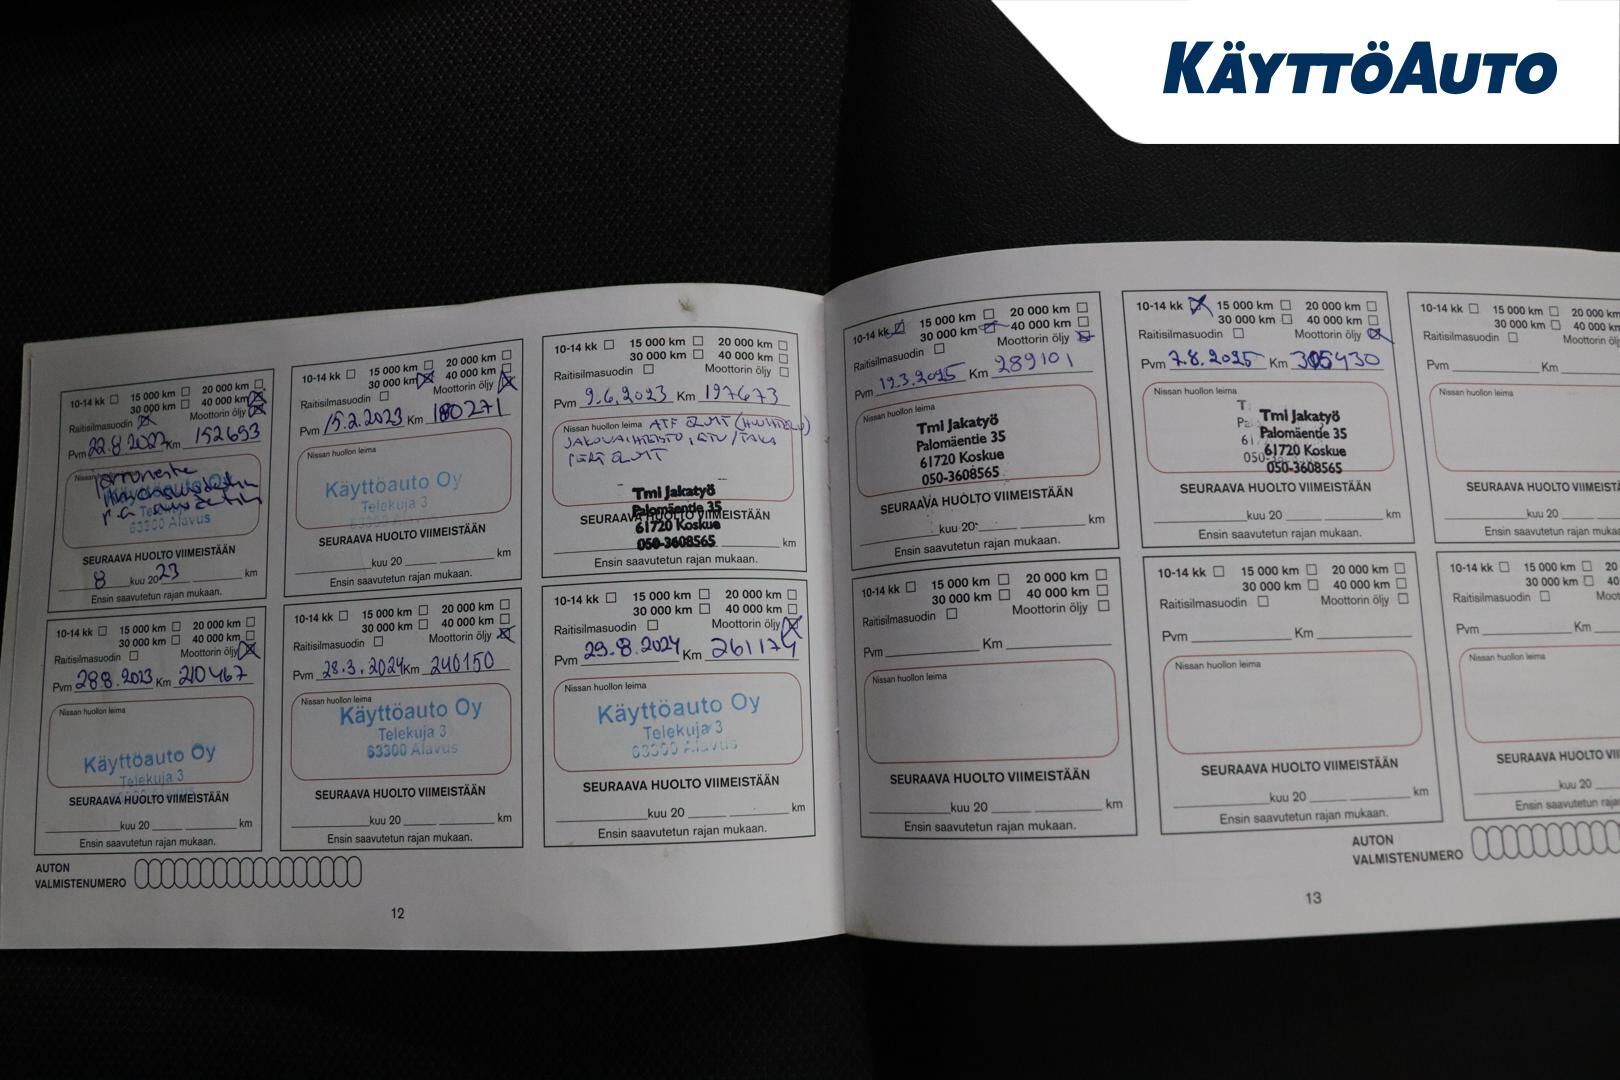 KÄYTTÖAUTO
10-14 kk 15 000 km 20 000 km
30 000 km 40 000 km
Raitisilmasuodin Moottorin öljy
Pvm 22.8.2022 Km 152693
Nissan
Käyttöauto Oy
63300 Alavus
SEURAAVA HUOLTO VIIMEISTÄÄN
8 kuu 2023 km
Ensin saavutetun rajan mukaan.
10-14 kk 15 000 km 20 000 km
30 000 km 40 000 km
Raitisilmasuodin Moottorin öljy
Pvm 15.2.2023 Km 180271
Nissan huollon leima
Käyttöauto Oy
Telekuja 3
63300 Alavus
SEURAAVA HUOLTO VIIMEISTÄÄN
kuu 20 km
Ensin saavutetun rajan mukaan.
10-14 kk 15 000 km 20 000 km
30 000 km 40 000 km
Raitisilmasuodin Moottorin öljy
Pvm 9.6.2023 Km 197673
Nissan huollon leima ATF ÖLJYT (HUUHTELU)
JAKOVAIHTEISTO, ETU/TAKA
PERÄ ÖLJYT
Tmi Jakatyö
Palomäentie 35
SEURAAVA HUOLTO VIIMEISTÄÄN
61720 Koskue
050-3608565 km
Ensin saavutetun rajan mukaan.
10-14 kk 15 000 km 20 000 km
30 000 km 40 000 km
Raitisilmasuodin Moottorin öljy
Pvm 28.8.2023 Km 210467
Nissan huollon leima
Käyttöauto Oy
Telekuja 3
63300 Alavus
SEURAAVA HUOLTO VIIMEISTÄÄN
kuu 20 km
Ensin saavutetun rajan mukaan.
10-14 kk 15 000 km 20 000 km
30 000 km 40 000 km
Raitisilmasuodin Moottorin öljy
Pvm 28.3.2024 Km 240150
Nissan huollon leima
Käyttöauto Oy
Telekuja 3
63300 Alavus
SEURAAVA HUOLTO VIIMEISTÄÄN
kuu 20 km
Ensin saavutetun rajan mukaan.
10-14 kk 15 000 km 20 000 km
30 000 km 40 000 km
Raitisilmasuodin Moottorin öljy
Pvm 29.8.2024 Km 261174
Nissan huollon leima
Käyttöauto Oy
Telekuja 3
63300 Alavus
SEURAAVA HUOLTO VIIMEISTÄÄN
kuu 20 km
Ensin saavutetun rajan mukaan.
AUTON
VALMISTENUMERO
12
10-14 kk 15 000 km 20 000 km
30 000 km 40 000 km
Raitisilmasuodin Moottorin öljy
Pvm 12.3.2025 Km 289101
Nissan huollon leima
Tmi Jakatyö
Palomäentie 35
61720 Koskue
050-3608565
SEURAAVA HUOLTO VIIMEISTÄÄN
kuu 20 km
Ensin saavutetun rajan mukaan.
10-14 kk 15 000 km 20 000 km
30 000 km 40 000 km
Raitisilmasuodin Moottorin öljy
Pvm 7.8.2025 Km 305430
Nissan huollon leima
Tmi Jakatyö
Palomäentie 35
61720 Koskue
050-3608565
SEURAAVA HUOLTO VIIMEISTÄÄN
kuu 20 km
Ensin saavutetun rajan mukaan.
10-14 kk 15 000 km 20 000 km
30 000 km 40 000
Raitisilmasuodin Moottorin
Pvm Km
Nissan huollon leima
SEURAAVA HUOLTO
kuu 20
Ensin saavutetun rajan
10-14 kk 15 000 km 20 000 km
30 000 km 40 000 km
Raitisilmasuodin Moottorin öljy
Pvm Km
Nissan huollon leima
SEURAAVA HUOLTO VIIMEISTÄÄN
kuu 20 km
Ensin saavutetun rajan mukaan.
10-14 kk 15 000 km 20 000 km
30 000 km 40 000 km
Raitisilmasuodin Moottorin öljy
Pvm Km
Nissan huollon leima
SEURAAVA HUOLTO VIIMEISTÄÄN
kuu 20 km
Ensin saavutetun rajan mukaan.
10-14 kk 15 000 km 20
30 000 km 40
Raitisilmasuodin
Pvm Km
Nissan huollon leima
SEURAAVA HUOLTO
kuu 20
Ensin saavutetun rajan
AUTON
VALMISTENUMERO
13